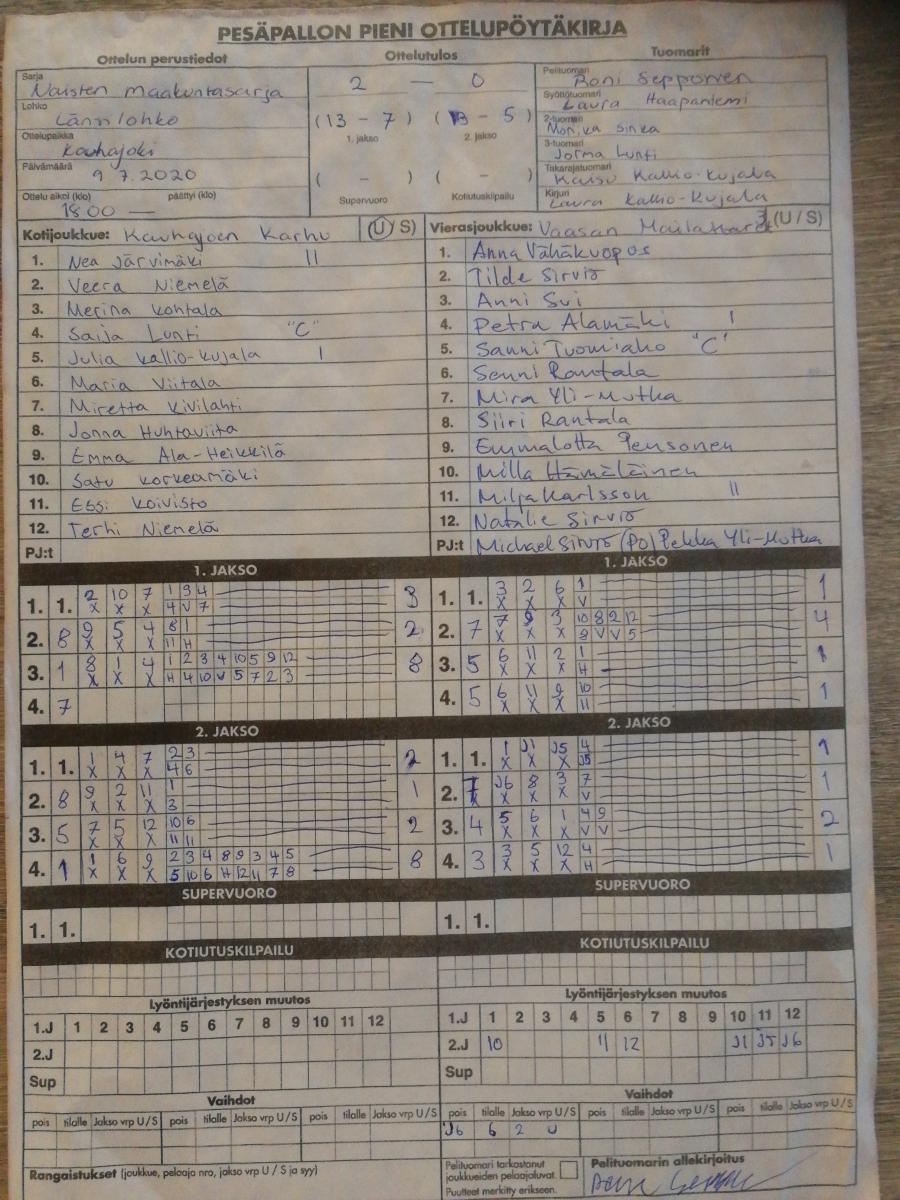 PESÄPALLON PIENI OTTELUPÖYTÄKIRJA
Ottelun perustiedot
Ottelutulos
Tuomarit
Sarja
Naisten maakuntasarja
2 — 0
Pelituomari
Roni Sepponen
Syöttötuomari
Laura Haapaniemi
Lohko
Länsilohko
(13 - 7) (13 - 5)
1. jakso 2. jakso
2-tuomari
Monika Sinka
Ottelupaikka
Kauhajoki
3-tuomari
Jorma Luoti
Päivämäärä
9 7.2020
( - ) ( - )
Takarajatuomari
Kaisu Kallio-Kujala
Ottelu alkoi (klo) päättyi (klo)
18.00 —
Supervuoro Kotiutuskilpailu
Kirjuri
Laura Kallio-Kujala
Kotijoukkue: Kauhajoen Karhu (U/S)
1. Nea Järvimäki II
2. Veera Niemelä
3. Merina Kohtala
4. Saija Luoti "C"
5. Julia Kallio-Kujala I
6. Maria Viitala
7. Miretta Kivilahti
8. Jonna Huhtaviita
9. Emma Ala-Heikkilä
10. Satu Korkeamäki
11. Essi Koivisto
12. Terhi Niemelä
PJ:t
Vierasjoukkue: Vaasan (U/S)
1. Anna Vähäkuopus
2. Tilde Sirviö
3. Anni Sui
4. Petra Alamäki I
5. Sanni Tuomiaho "C"
6. Senni Rantala
7. Mira Yli-Mutka
8. Siiri Rantala
9. Emmalotta Pensonen
10. Milla Hämäläinen
11. Milja Karlsson II
12. Natalie Sirviö
PJ:t Michael Sirviö (PO) Pekka Yli-Mutka
1. JAKSO
1. 1. 2 10 7 1 3 4 3
X X X 4 V 7
2. 8 9 5 4 8 1 2
X X X 11 H
3. 1 8 1 4 1 2 3 4 10 5 9 12 8
X X X H 4 10 V 5 7 2 3
4. 7
1. JAKSO
1. 1. 3 2 6 1 1
X X X V
2. 7 7 9 3 10 8 2 12 4
X X X 8 V V 5
3. 5 6 11 2 1 1
X X X H
4. 5 6 11 9 10 1
X X X 11
2. JAKSO
1. 1. 1 4 7 2 3 2
X X X 4 6
2. 8 9 2 11 1 1
X X X 3
3. 5 7 5 12 10 6 2
X X X 11 11
4. 1 1 6 9 2 3 4 8 9 3 4 5 8
X X X 5 10 6 H 12 11 7 8
2. JAKSO
1. 1. 1 J1 J5 4 1
X X X J5
2. 7 J6 8 3 7 1
X X X V
3. 4 5 6 1 4 9 2
X X X V V
4. 3 3 5 12 4 1
X X X H
SUPERVUORO
1. 1.
SUPERVUORO
1. 1.
KOTIUTUSKILPAILU
KOTIUTUSKILPAILU
Lyöntijärjestyksen muutos
1.J 1 2 3 4 5 6 7 8 9 10 11 12
2.J
Sup
Lyöntijärjestyksen muutos
1.J 1 2 3 4 5 6 7 8 9 10 11 12
2.J 10 11 12 J1 J5 J6
Sup
Vaihdot
pois tilalle Jakso vrp U/S pois tilalle Jakso vrp U/S pois tilalle Jakso vrp U/S
Vaihdot
pois tilalle Jakso vrp U/S pois tilalle Jakso vrp U/S pois tilalle Jakso vrp U/S
J6 6 2 U
Rangaistukset (joukkue, pelaaja nro, jakso vrp U / S ja syy)
Pelituomari tarkastanut
joukkueiden pelaajaluvat.
Puutteet merkitty erikseen.
Pelituomarin allekirjoitus